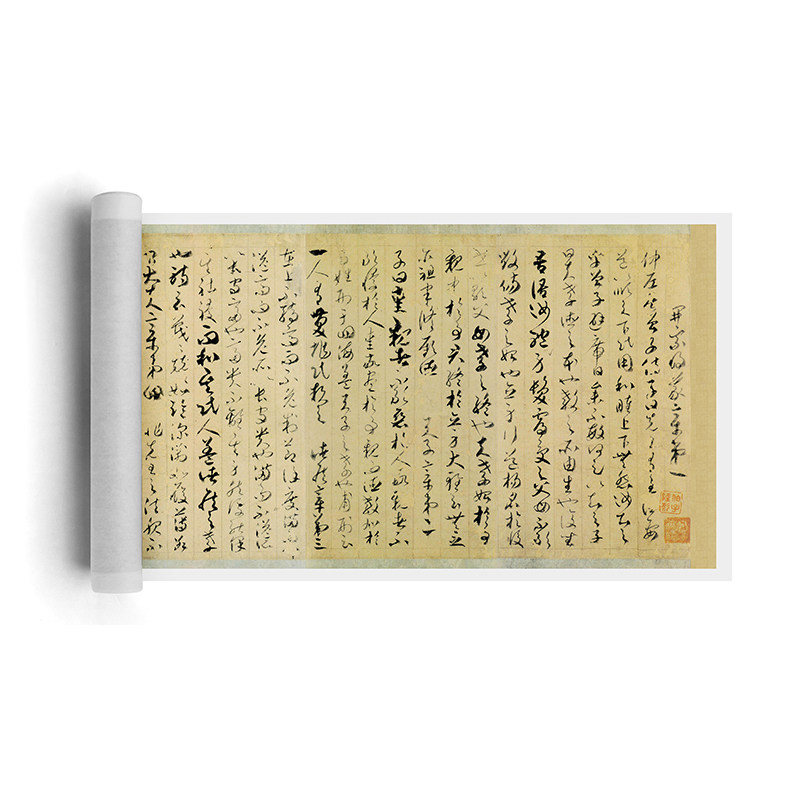 開宗明義章第一
仲尼居曾子侍子曰先王有至德要
道以順天下民用和睦上下無怨汝知之
乎曾子避席曰參不敏何足以知之子
曰夫孝德之本也教之所由生也復坐
吾語汝體身髮膚受之父母不敢
毀傷孝之始也立身行道揚名於後
世以顯父母孝之終也夫孝始於事
親中於事君終於立身大雅云無念
爾祖聿脩厥德 天子章第二
子曰愛親者不敢惡於人敬親者不
敢慢於人愛敬盡於事親而德教加於
百姓刑于四海蓋天子之孝也甫刑云
一人有慶兆民賴之 諸侯章第三
在上不驕高而不危制節謹度滿而不
溢高而不危所以長守貴也滿而不溢所
以長守富也富貴不離其身然後能保
其社稷而和其民人蓋諸侯之孝
也詩云戰戰兢兢如臨深淵如履薄冰
卿大夫章第四 非先王之法服不